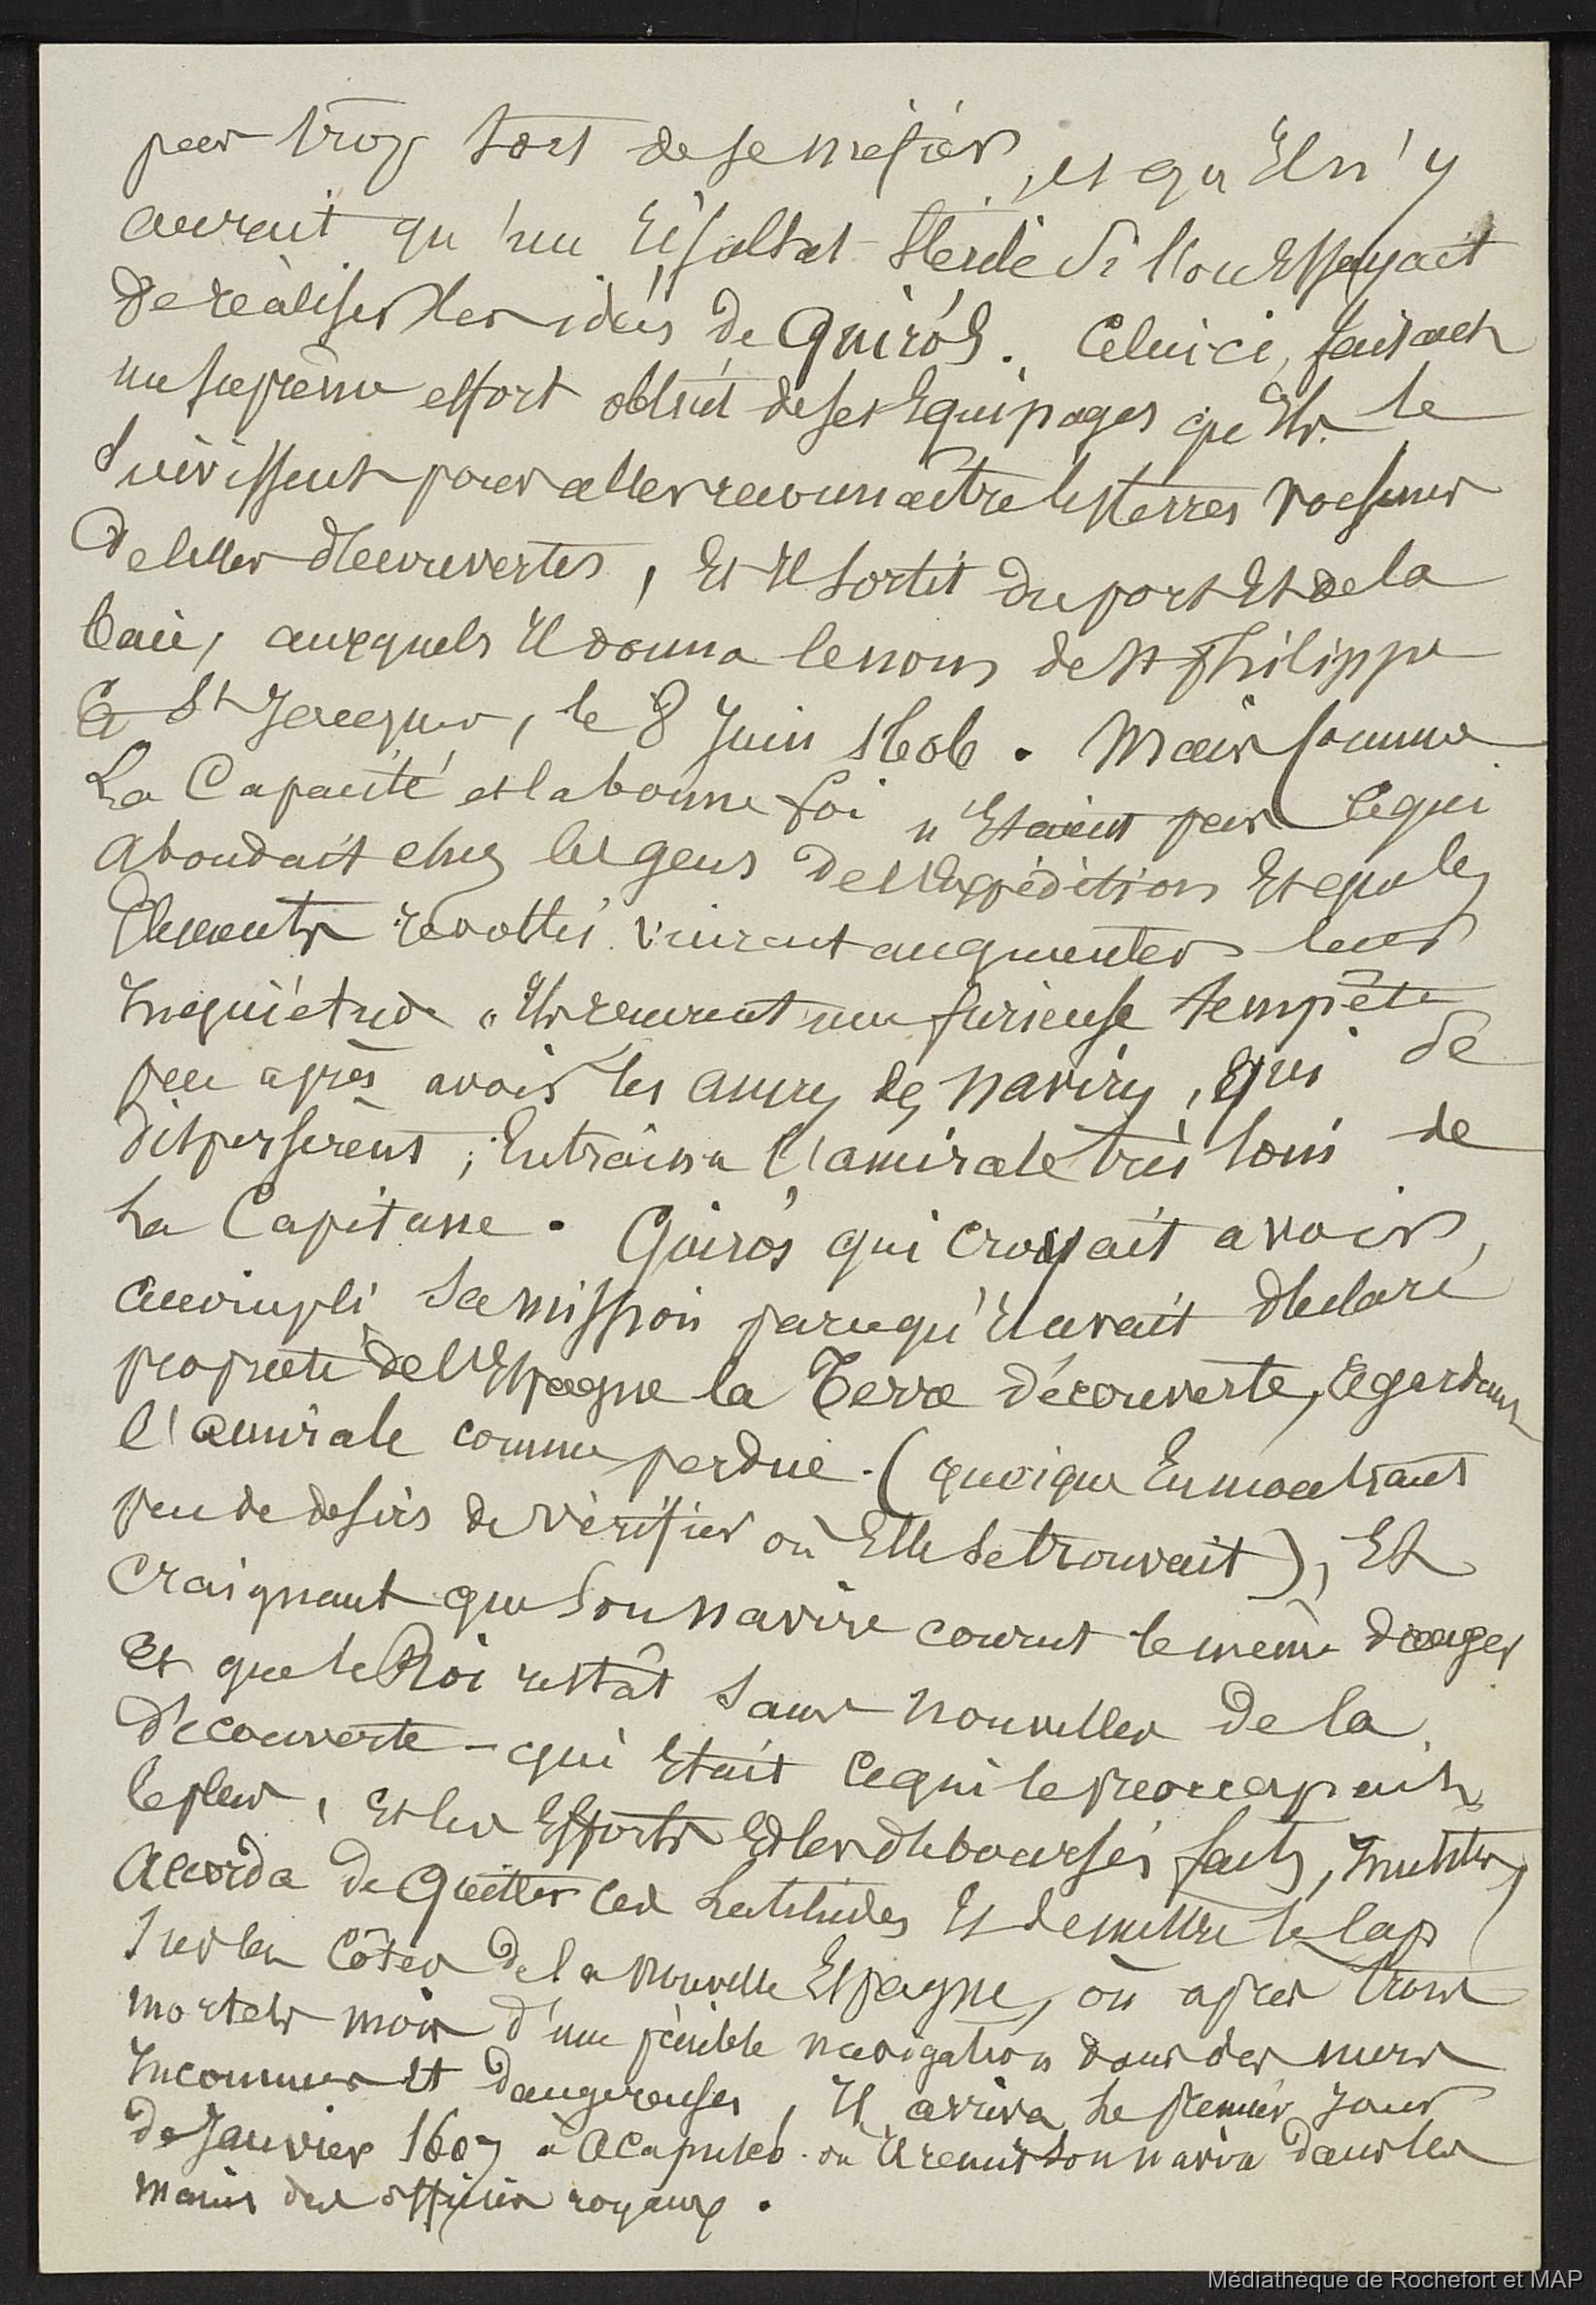 pas trop tôt de se méfier, et qu'il n'y
aurait qu'un résultat stérile si l'on essayait
de réaliser les idées de Quirós. Celui-ci, faisant
un suprème effort obtint de ses équipages que Ils le
suivissent pour aller reconnaître les terres voisines
de celles découvertes, Et Il sortit du port Et de la
baie, auxquels Il donna le nom de St Philippe
Et St Jacques, le 8 Juin 1606. Mais comme
La Capacité et la bonne foi n'Etaient pas ce qui
abondait chez les gens de l'Expédition Et que les
Eléments révoltés vinrent augmenter leur
Inquiétude, Ils eurent une furieuse tempête
peu après avoir les navires, qui se
dispersèrent; Entraîna l'amirale très loin de
La Capitane. Quirós qui croyait avoir
accompli sa mission parcequ'Il avait déclaré
propriété de l'Espagne la Terre découverte, regardant
l'amirale comme perdue. (quoique En montrant
peu de désirs de vérifier où Elle se trouvait), Et
craignant que son navire courut le même danger
Et que le Roi restât sans nouvelles de la
découverte – qui Etait ce qui le préoccupait
le plus, et les Efforts Et les déboursés faits, Inutiles,
de quitter ces Latitudes Et de mettre le cap
sur les Côtes de la nouvelle Espagne, où après trois
mortels mois d'une pénible navigation dans des mers
Inconnues Et dangereuses, Il arriva Le premier jour
de Janvier 1607 à Acapulco où Il remit son navire dans les
mains des officiers royaux.
Médiathèque de Rochefort et MAP